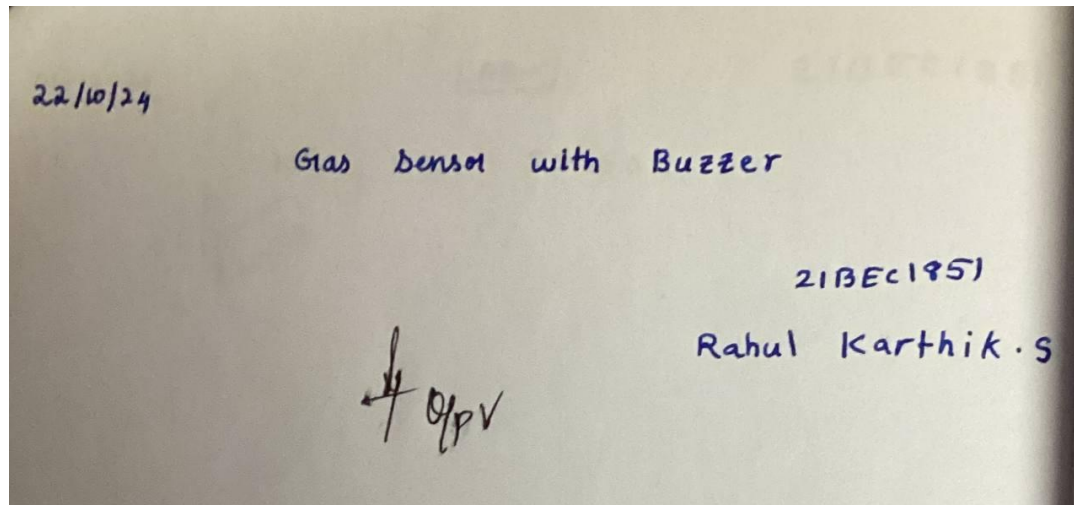 22/10/24
Gas Sensor with Buzzer
21BEC1851
Rahul Karthik.S
O/P V